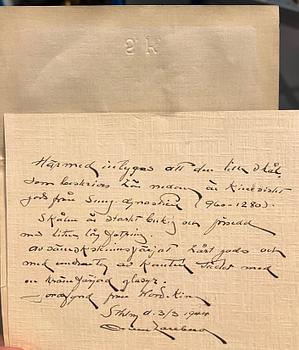 S K
Härmed intygas att den lilla skål,
som beskrives här nedan är kinesiskt
gods från Sung dynastien (960-1280).
Skålen är starkt bukig och försedd
med liten låg fotring
av sämskskinnsfärgat hårt gods och
med undantag av kanten täckt med
en krämfärgad glasyr.
Jordfynd från Nord-Kina
Sthlm d. 3/3 1944